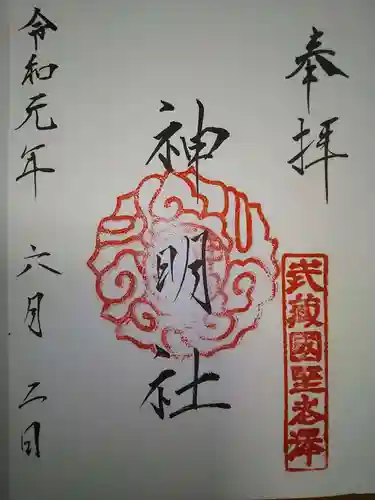 奉拝
武蔵國野老澤
神明社
令和元年六月二日